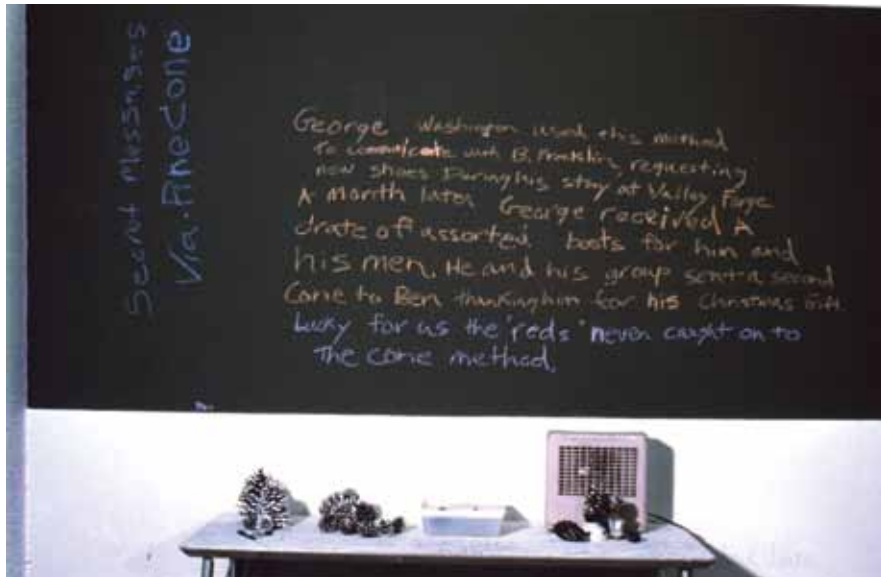 Secret Messages
Via. PineCone
George Washington used this method
To communicate with B. Franklin, requesting
new shoes During his stay at Valley Forge
A Month later George received A
crate of assorted boots for him and
his men. He and his group sent a second
Cone to Ben thanking him for his Christmas Gift.
Lucky for us the "reds" never caught on to
The cone method.